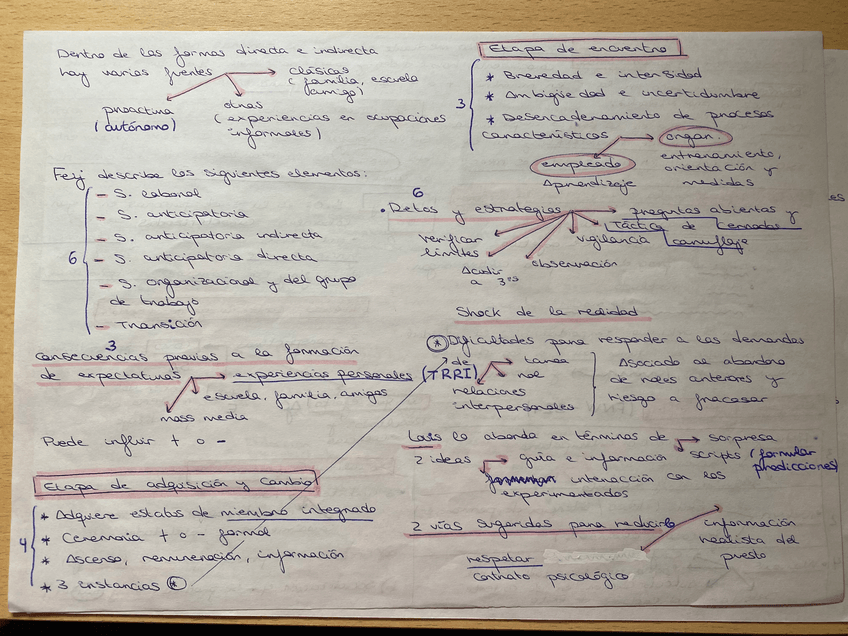 Dentro de las formas directa e indirecta
hay varias fuentes
clásicas
(familia, escuela
amigo)
proactiva
(autónomo)
otras
(experiencias en ocupaciones
informales)
Feij describe los siguientes elementos:
6
- S. laboral
- S. anticipatoria
- S. anticipatoria indirecta
- S. anticipatoria directa
- S. organizacional y del grupo
de trabajo
- Transición
3
consecuencias previas a la formación
de expectativas
experiencias personales
escuela, familia, amigos
mass media
Puede influir + o -
Etapa de adquisición y cambio
4
* Adquiere estatus de miembro integrado
* Ceremonia + o - formal
* Ascenso, remuneración, información
* 3 instancias *
Etapa de encuentro
3
* Brevedad e intensidad
* Ambigüedad e incertidumbre
* Desencadenamiento de procesos
característicos
organ
empleado
entrenamiento,
orientación y
medidas
Aprendizaje
6
• Retos y estrategias
preguntas abiertas y
Táctica de
camuflaje
verificar
límites
vigilancia
Acudir
a 3ºs
observación
Shock de la realidad
* Dificultades para responder a las demandas
de
(TRRI)
tarea
rol
relaciones
interpersonales
Asociado al abandono
de roles anteriores y
riesgo a fracasar
Louis lo aborda en términos de
sorpresa
scripts (formular
predicciones)
2 ideas
guía e información
interacción con los
experimentados
2 vías sugeridas para reducirlo
información
realista del
puesto
respetar
contrato psicológico
es